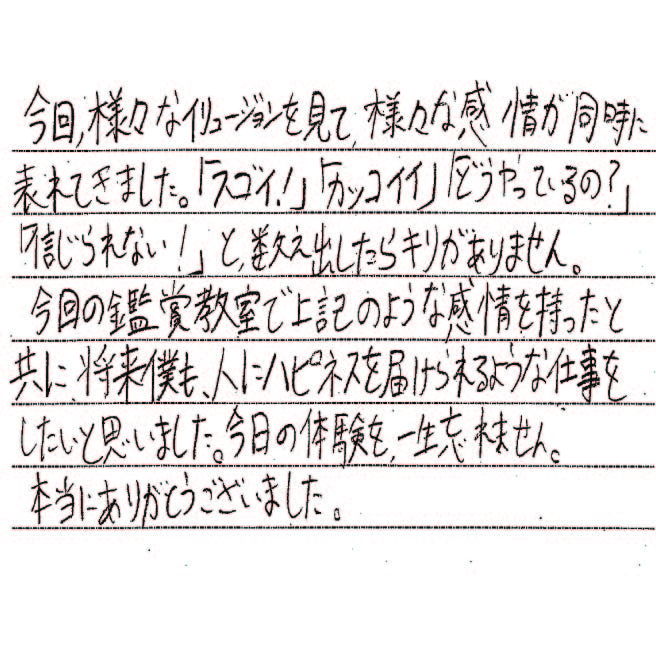 今回、様々なイリュージョンを見て、様々な感情が同時に
表れてきました。「スゴイ！」「カッコイイ」「どうやっているの？」
「信じられない！」と、数え出したらキリがありません。
今回の鑑賞教室で上記のような感情を持ったと
共に、将来僕も、人にハピネスを届けられるような仕事を
したいと思いました。今日の体験を、一生忘れません。
本当にありがとうございました。